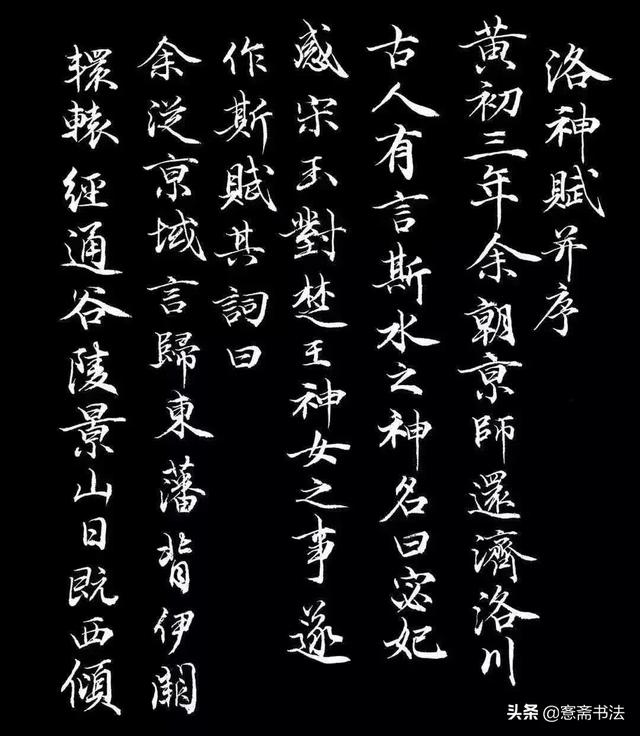 洛神賦并序
黄初三年余朝京師還濟洛川
古人有言斯水之神名曰宓妃
感宋玉對楚王神女之事遂
作斯賦其詞曰
余従京域言歸東藩背伊闕
轘轅經通谷陵景山日既西傾
头条 @愙斋书法